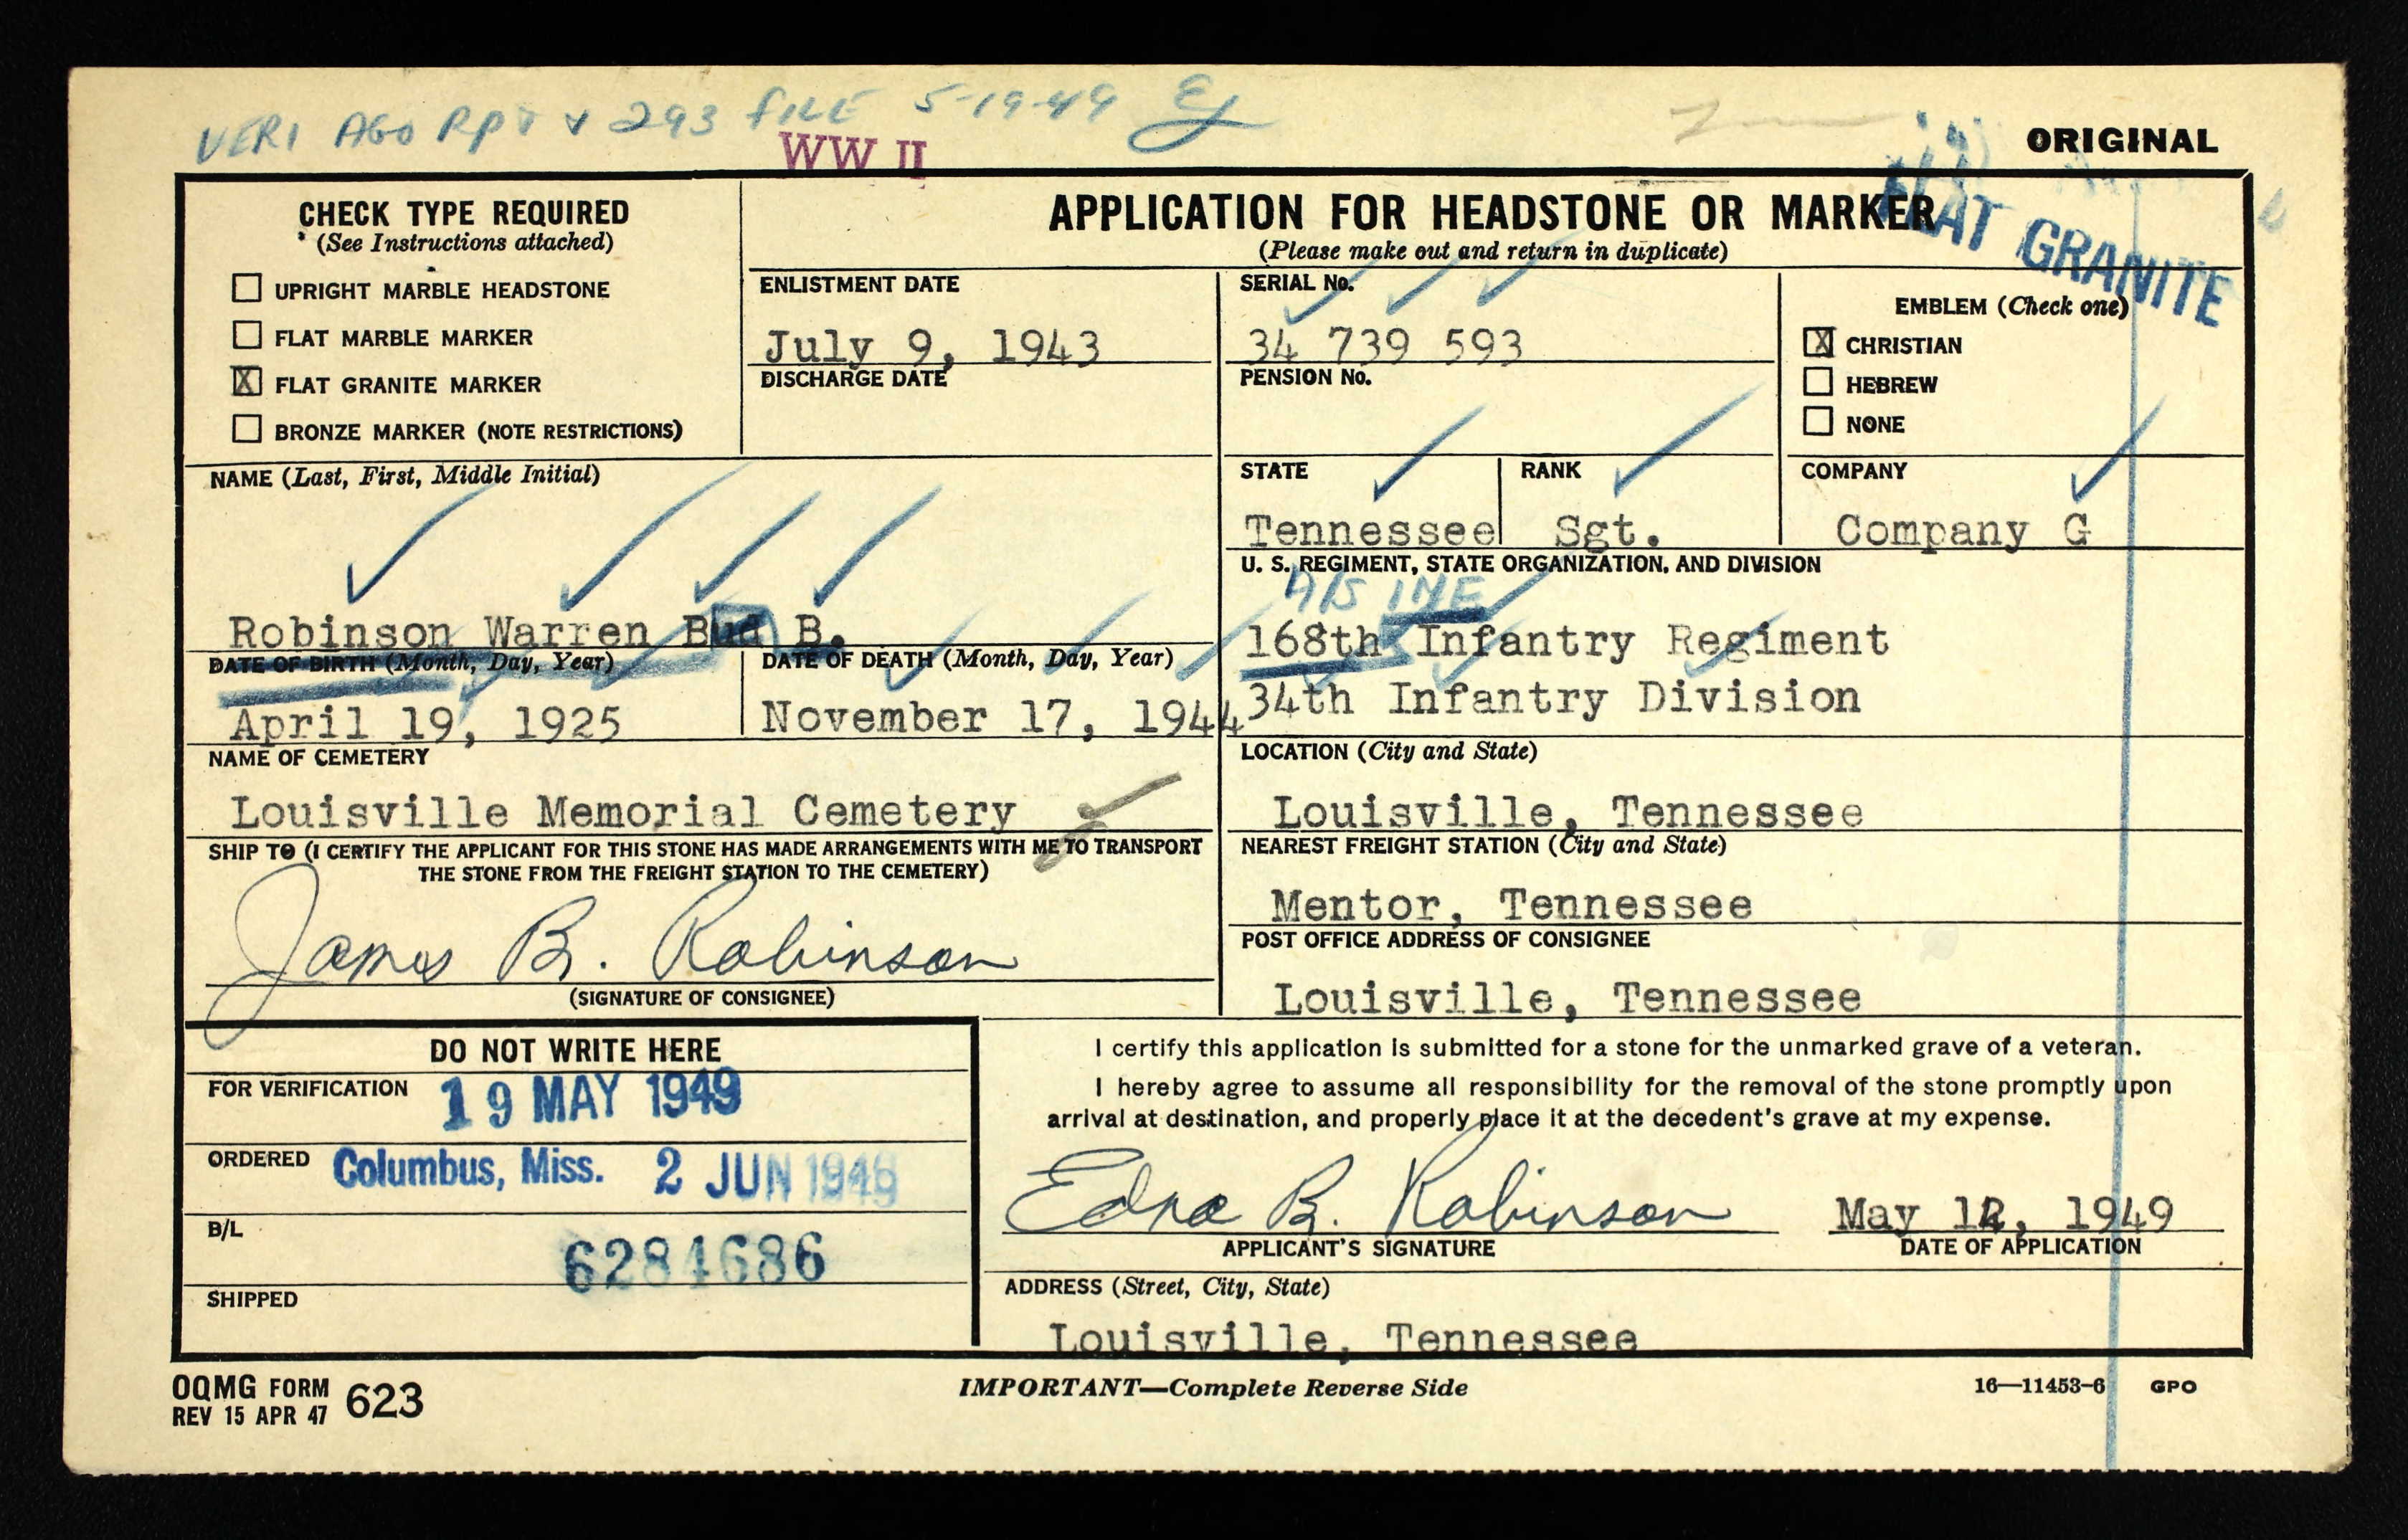 VERI AGO Rpt & 293 FILE 5-19-49 EJ
WW II
ORIGINAL
FLAT GRANITE
CHECK TYPE REQUIRED
(See Instructions attached)
☐ UPRIGHT MARBLE HEADSTONE
☐ FLAT MARBLE MARKER
☒ FLAT GRANITE MARKER
☐ BRONZE MARKER (NOTE RESTRICTIONS)
APPLICATION FOR HEADSTONE OR MARKER
(Please make out and return in duplicate)
ENLISTMENT DATE
July 9, 1943
DISCHARGE DATE
SERIAL No.
34 739 593
PENSION No.
EMBLEM (Check one)
☒ CHRISTIAN
☐ HEBREW
☐ NONE
NAME (Last, First, Middle Initial)
Robinson Warren Bud B.
STATE
Tennessee
RANK
Sgt.
COMPANY
Company G
U. S. REGIMENT, STATE ORGANIZATION, AND DIVISION
INF
168th Infantry Regiment
34th Infantry Division
DATE OF BIRTH (Month, Day, Year)
April 19, 1925
DATE OF DEATH (Month, Day, Year)
November 17, 1944
NAME OF CEMETERY
Louisville Memorial Cemetery
LOCATION (City and State)
Louisville, Tennessee
SHIP TO (I CERTIFY THE APPLICANT FOR THIS STONE HAS MADE ARRANGEMENTS WITH ME TO TRANSPORT
THE STONE FROM THE FREIGHT STATION TO THE CEMETERY)
James B. Robinson
(SIGNATURE OF CONSIGNEE)
NEAREST FREIGHT STATION (City and State)
Mentor, Tennessee
POST OFFICE ADDRESS OF CONSIGNEE
Louisville, Tennessee
DO NOT WRITE HERE
FOR VERIFICATION 19 MAY 1949
ORDERED Columbus, Miss. 2 JUN 1949
B/L
6284686
SHIPPED
I certify this application is submitted for a stone for the unmarked grave of a veteran.
I hereby agree to assume all responsibility for the removal of the stone promptly upon
arrival at destination, and properly place it at the decedent's grave at my expense.
Edna B. Robinson
APPLICANT'S SIGNATURE
May 12, 1949
DATE OF APPLICATION
ADDRESS (Street, City, State)
Louisville, Tennessee
OQMG FORM 623
REV 15 APR 47
IMPORTANT—Complete Reverse Side
16—11453-6 GPO